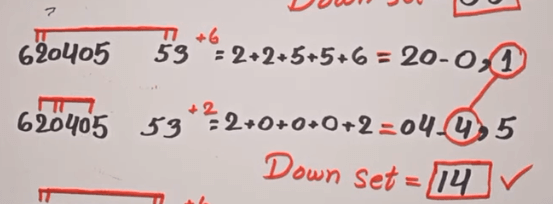 Down set
620405 53 +6 = 2+2+5+5+6 = 20-0,1
620405 53 +2 = 2+0+0+0+2 = 04-4,5
Down set = 14 ✓